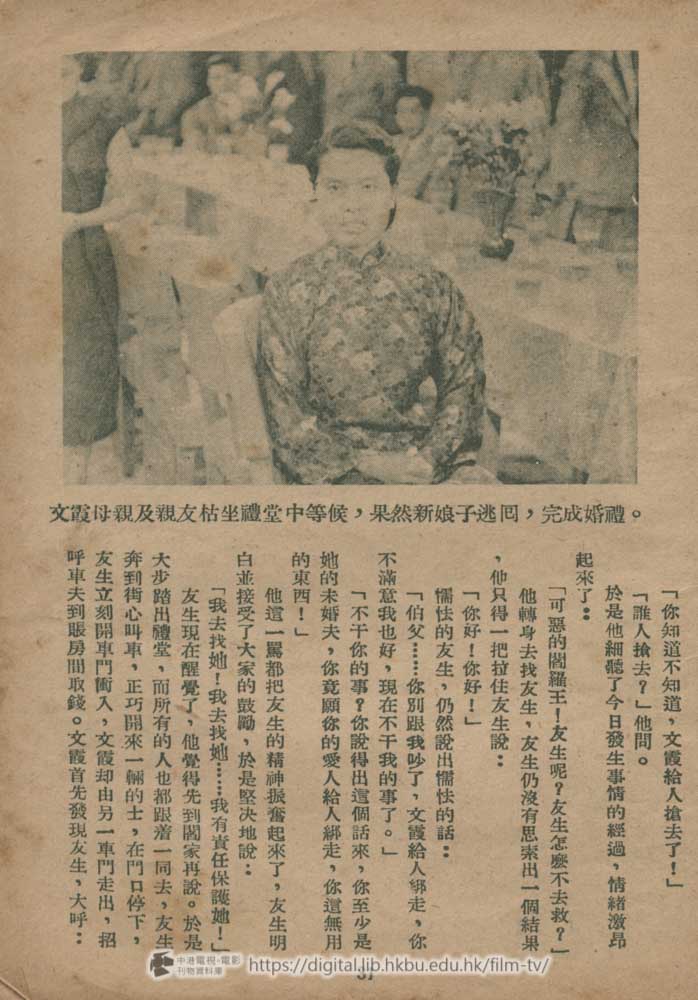 文霞母親及親友枯坐禮堂中等候，果然新娘子逃囘，完成婚禮。
「你知道不知道，文霞給人搶去了！」
「誰人搶去？」他問。
於是他細聽了今日發生事情的經過，情緒激昂
起來了：
「可惡的閻羅王！友生呢？友生怎麽不去救？」
他轉身去找友生，友生仍沒有思索出一個結果
，他只得一把拉住友生說：
「你好！你好！」
懦怯的友生，仍然說出懦怯的話：
「伯父……你別跟我吵了，文霞給人綁走，你
不滿意我也好，現在不干我的事了。」
「不干你的事？你說得出這個話來，你至少是
她的未婚夫，你竟願你的愛人給人綁走，你這無用
的東西！」
他這一罵都把友生的精神振奮起來了，友生明
白並接受了大家的鼓勵，於是堅決地說：
「我去找她！我去找她……我有責任保護她！」
友生現在醒覺了，他覺得先到閻家再說。於是
大步踏出禮堂，而所有的人也都跟着一同去，友生
奔到街心叫車，正巧開來一輛的士，在門口停下，
友生立刻開車門衝入，文霞却由另一車門走出，招
呼車夫到賬房間取錢。文霞首先發現友生，大呼：
37
中港電視·電影
刊物資料庫
https://digital.lib.hkbu.edu.hk/film-tv/